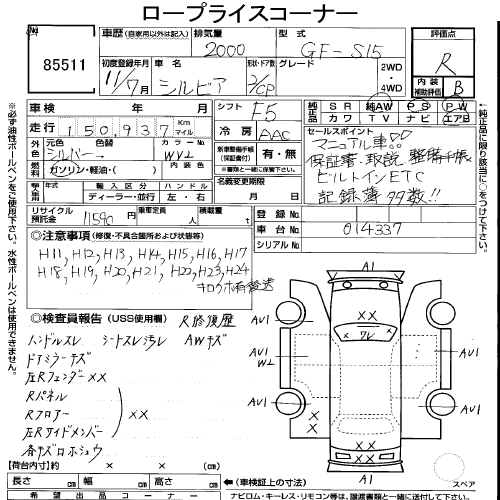 ロープライスコーナー
No.
85511
車歴 (自家用以外は記入)
排気量
2000
型式
GF-S15
評価点
R
初度登録年月
11/7月
車名
シルビア
形状・ドア数
2/CP
グレード
2WD
4WD
内装
補助評価
B
車検 年 月
シフト
F5
純正品
SR 純AW PS PW
カワ TV ナビ エアB
走行
150,937
Km
マイル
冷房
AAC
セールスポイント
マニュアル車!!
保証書・取説 整備手帳
ビルトインETC
記録簿多数!!
外色
元色
シルバー
色替
カラーNo
WV2
燃料
ガソリン・軽油・( )
内装色
新車整備手帳
(保証書付)
有・無
※車輌と一緒に保管して下さい。
輸入車
年式
輸入区分
ディーラー・並行
ハンドル
左・右
名義変更期限
月 日
リサイクル
預託金
11590 円
乗車定員
人
積載量
t
登録No.
車台No.
014337
シリアルNo.
◎注意事項 (修復・不具合箇所および状態等)
H11, H12, H13, H14, H15, H16, H17
H18, H19, H20, H21, H22, H23, H24
キロクボ有後送
◎検査員報告 (USS使用欄)
R修復歴
ハンドルスレ シートスレ汚レ AWキズ
ドアミラーキズ
左Rフェンダー××
Rパネル
Rフロアー ××
左Rサイドメンバー
各部キズ ボシュウ
A1
AU1
AU1
W2
AU1
AU1
AU1
××
フレ
×
×
××
A1
スペア
(荷台内寸)約 × × (cm)
長さ cm 幅 cm 高さ cm
(車検証上の寸法)
希望出品コーナー
ナビロム・キーレス・リモコン等は、譲渡書類と一緒に送付して下さい。
※必ず油性ボールペンをご使用下さい。水性ボールペンは使用できません。